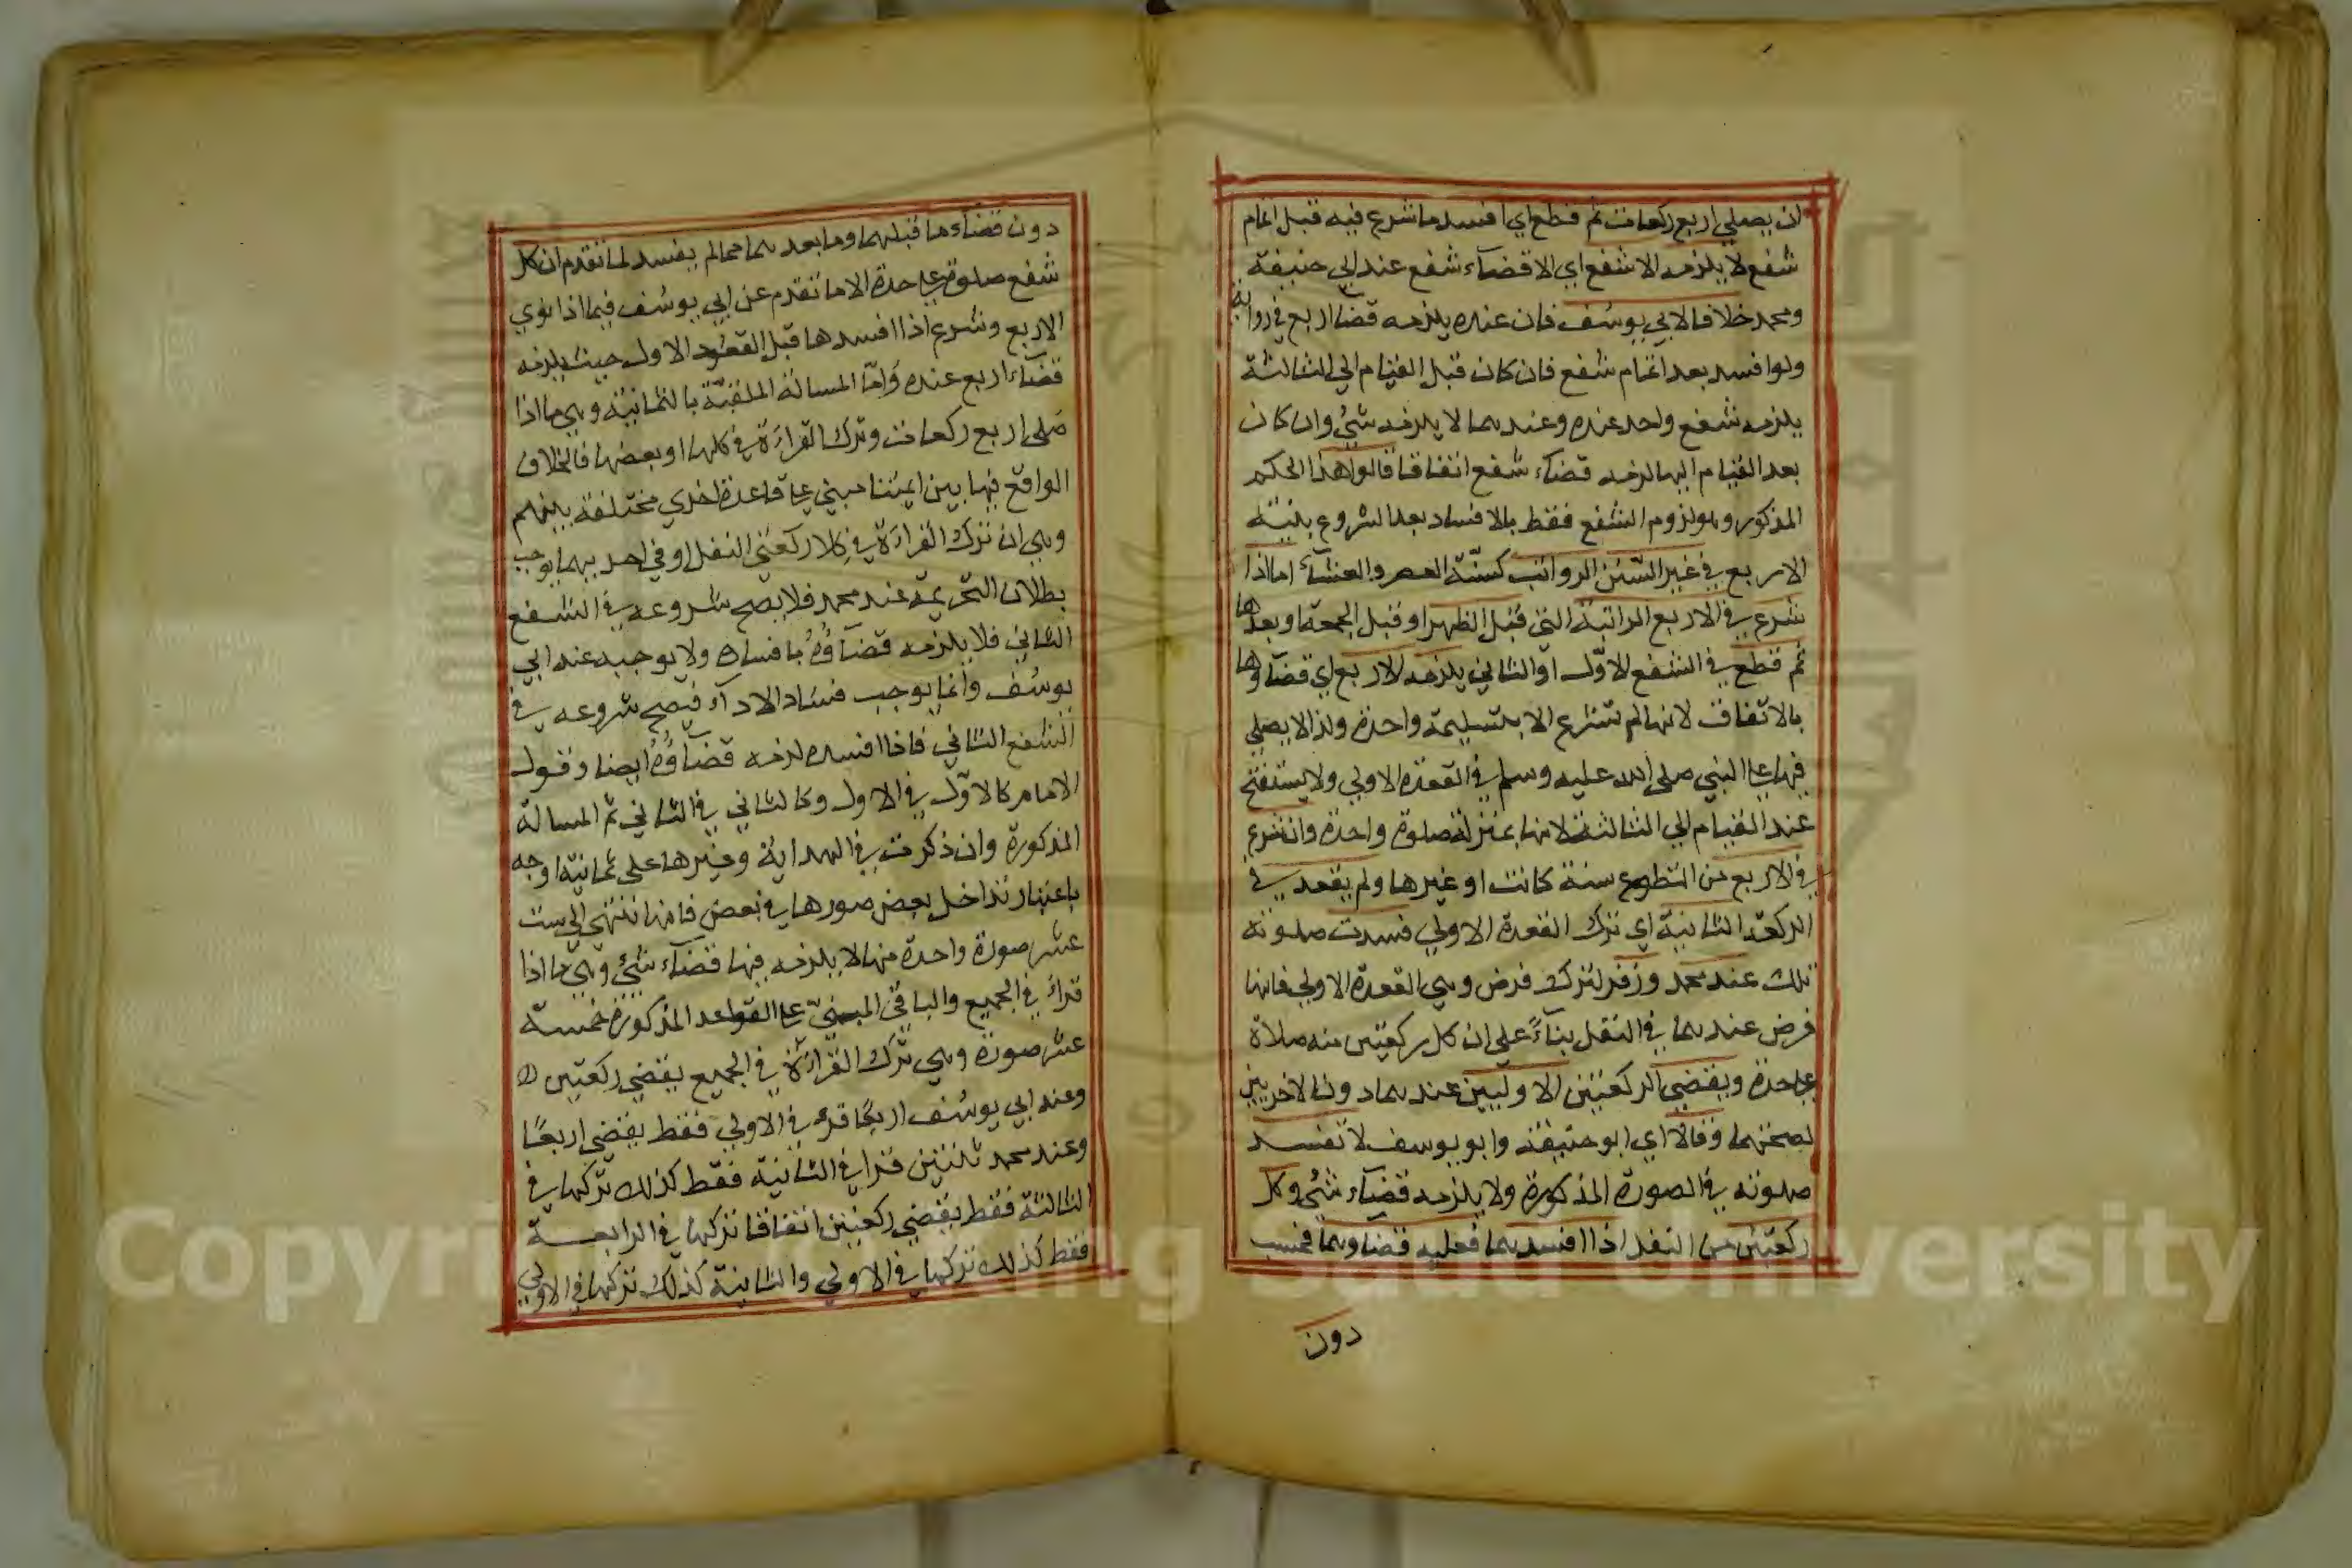 ان يصلي اربع ركعات ثم قطع اي افسد ما شرع فيه قبل اتمام
شفع لا يلزمه الا شفع اي الا قضاء شفع عند ابي حنيفة
ومحمد خلافا لابي يوسف فان عنده يلزمه قضا اربع في رواية
ولو افسد بعد اتمام شفع فان كان قبل القيام الي الثالثة
يلزمه شفع واحد عنده وعندهما لا يلزمه شئ وان كان
بعد القيام اليها لزمه قضاء شفع اتفاقا قالوا هذا الحكم
المذكور وهو لزوم الشفع فقط بالافساد بعد الشروع بنية
الاربع في غير السنن الرواتب كسنة العصر والعشاء اما اذا
شرع في الاربع الراتبة التي قبل الظهر او قبل الجمعة او بعدها
ثم قطع في الشفع الاول او الثاني يلزمه الاربع اي قضاؤها
بالاتفاق لانها لم تشرع الا بتسليمة واحدة ولذا لا يصلي
فيها علي النبي صلى الله عليه وسلم في القعدة الاولي ولا يستفتح
عند القيام الي الثالثة لانها بمنزلة صلوة واحدة وان شرع
في الاربع من التطوع سنة كانت او غيرها ولم يقعد في
الركعة الثانية اي ترك القعدة الاولي فسدت صلوته
تلك عند محمد وزفر لترك فرض وهي القعدة الاولي فانها
فرض عندهما في النفل بناءً على ان كل ركعتين منه صلاة
علي حدة ويقضي الركعتين الاوليين عندهما دون الاخريين
لصحتهما وقالا اي ابو حنيفة وابو يوسف لا تفسد
صلوته في الصورة المذكورة ولا يلزمه قضاء شئ وكل
ركعتين من النفل اذا افسدهما فعليه قضاوهما فحسب
دون
دون قضاء ما قبلهما وما بعدهما مما لم يفسد لما تقدم ان كل
شفع صلوة علي حدة الا ما تقدم عن ابي يوسف فيما اذا نوي
الاربع وشرع اذا افسدها قبل القعود الاول حيث يلزمه
قضاء اربع عنده وامّا المسالة الملقبة بالثمانية وهي ما اذا
صلى اربع ركعات وترك القراءة في كلها او بعضها فالخلاف
الواقع فيها بين ايمتنا مبني علي قاعدة اخري مختلفة بينهم
وهي ان ترك القراءة في كلا ركعتي النفل او في احديهما يوجب
بطلان التحريمة عند محمد فلا يصح شروعه في الشفع
الثاني فلا يلزمه قضاؤه بافساده ولا يوجبه عند ابي
يوسف وانما يوجب فساد الاداء فيصح شروعه في
الشفع الثاني فاذا افسده لزمه قضاؤه ايضا وقول
الامام كالاول في الاول وكالثاني في الثاني ثم المسالة
المذكورة وان ذكرت في الهداية وغيرها على ثمانية اوجه
باعتبار تداخل بعض صورها في بعض فانها تنتهي الي ست
عشر صورة واحدة منها لا يلزمه فيها قضاء شئ وهي ما اذا
قراء في الجميع والباقي المبني علي القواعد المذكورة خمسة
عشر صورة وهي ترك القراءة في الجميع يقضي ركعتين
وعند ابي يوسف اربعًا قرء في الاولي فقط يقضي اربعًا
وعند محمد ثنتين قرا في الثانية فقط كذلك تركها في
الثالثة فقط يقضي ركعتين اتفاقا تركها في الرابعة
فقط كذلك تركها في الاولي والثانية كذلك تركها في الاولي
Copyright © King Saud University